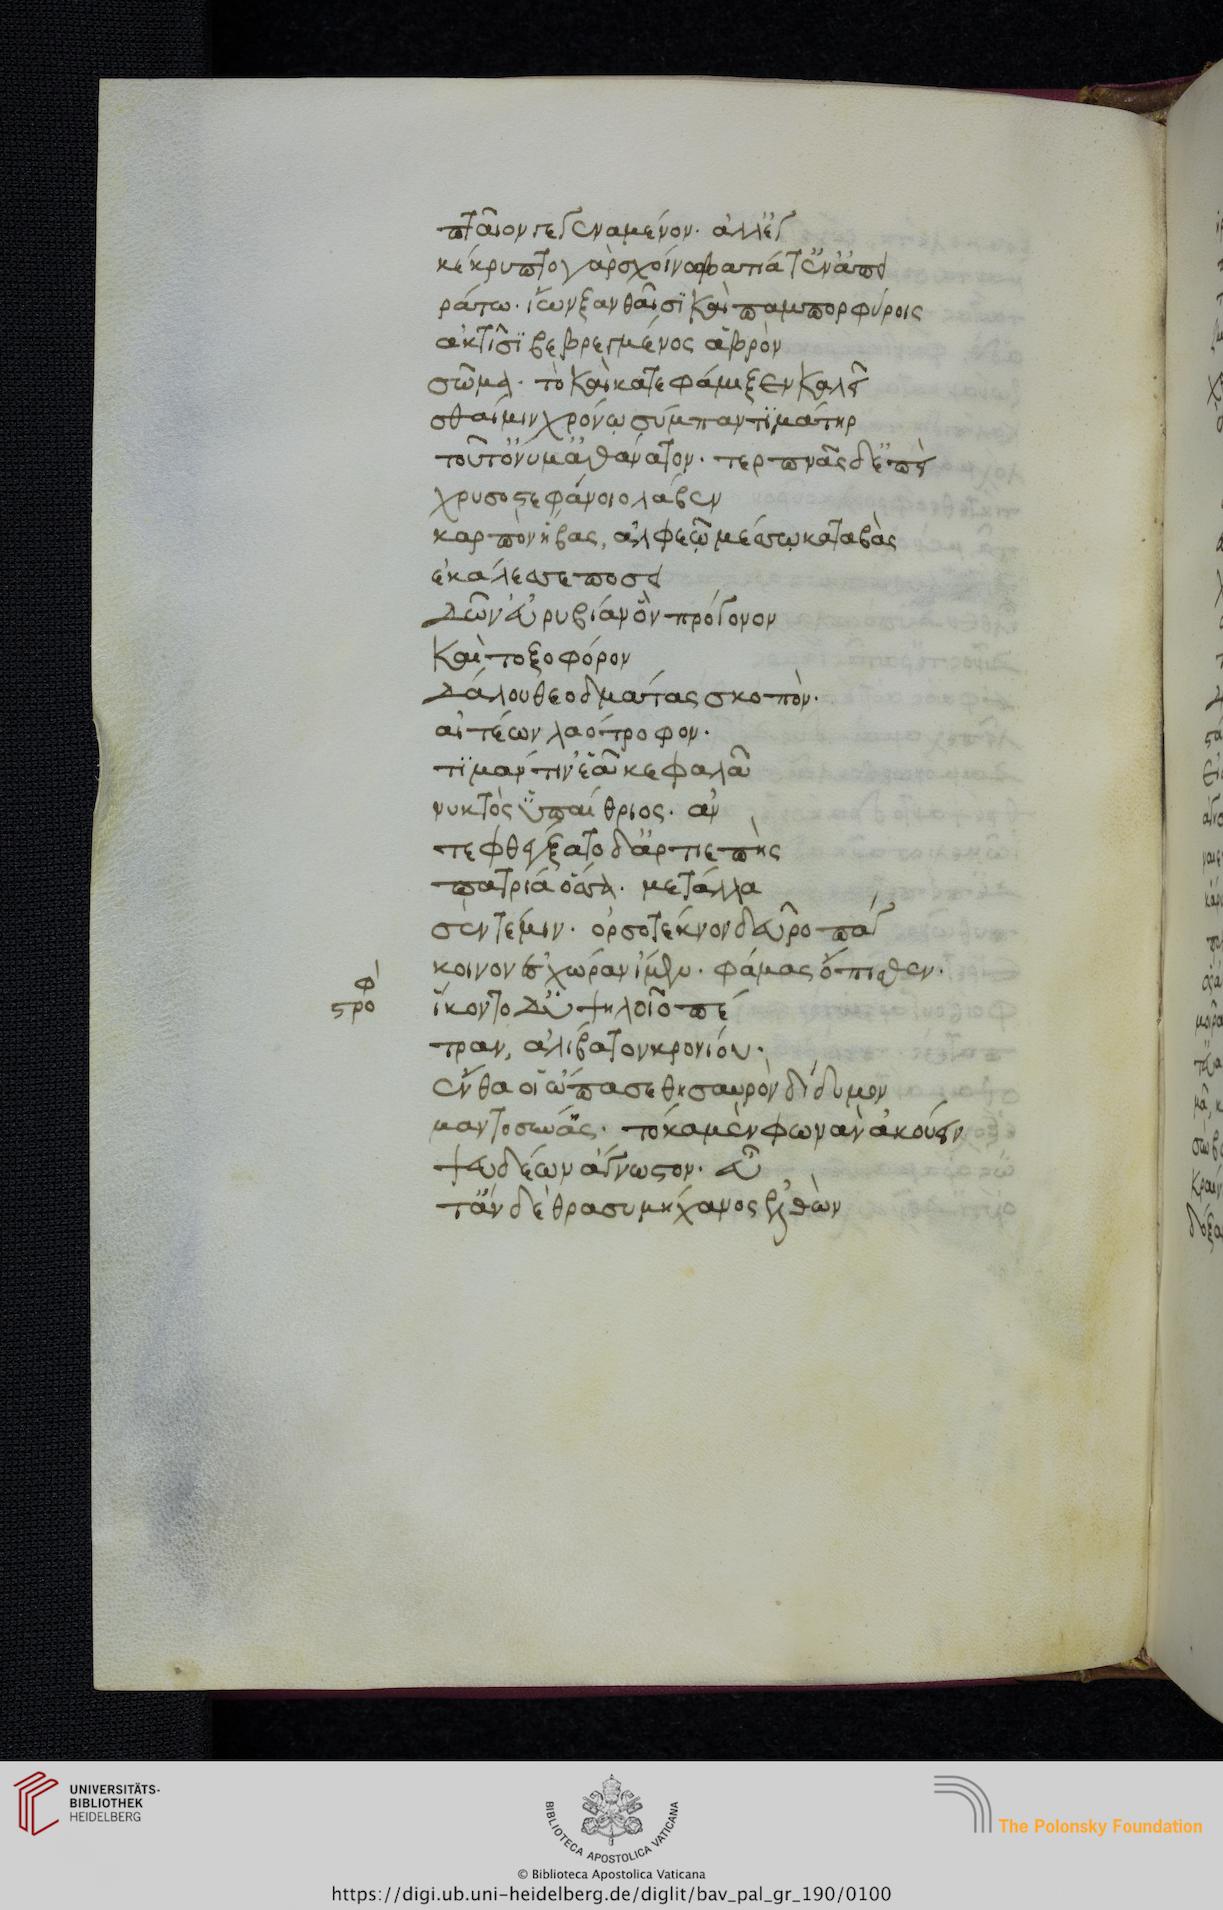 πταῖον γεγεναμένον. ἀλλ' ἐγ
κέκρυπτο γὰρ σχοίνω βατιᾶ τ' ἐν ἀπει
ράτω. ἴων ξανθαῖσι καὶ παμπορφύροις
ἀκτῖσι βεβρεγμένος ἁβρὸν
σῶμα. τὸ καὶ κατεφάμιξεν καλεῖ
σθαί μιν χρόνω σύμπαντι μάτηρ
τοῦτ' ὄνυμ' ἀθάνατον. τερπνᾶς δ' ἐπεὶ
χρυσοστεφάνοιο λάβεν
καρπὸν ἥβας, ἀλφεῶ μέσσω καταβὰς
ἐκάλεσσε ποσει
δῶν' εὐρυβίαν ὃν πρόγονον
καὶ τοξοφόρον
Δάλου θεοδμάτας σκοπὸν.
αἰτέων λαότροφον.
τιμάν τιν' ἑᾶ κεφαλᾶ
νυκτὸς ὑπαίθριος. ἀν
τεφθέγξατο δ' ἀρτιεπὴς
πατρία ὄσσα. μετάλλα
σέν τέ μιν. ὄρσο τέκνον δεῦρο πάγ
κοινον ἐς χώραν ἴμεν. φάμας ὄπισθεν.
ἀντιστρο ἵκοντο δ' ὑψηλοῖο πέ
τραν, ἀλιβάτον κρονίου.
ἔνθα οἱ ὤπασε θησαυρὸν δίδυμον
μαντοσύνας. τόκα μὲν φωνὰν ἀκούειν
ψευδέων ἄγνωστον. εὖ
τ' ἂν δὲ θρασυμήχανος ἐλθὼν
UNIVERSITÄTS-
BIBLIOTHEK
HEIDELBERG
BIBLIOTECA APOSTOLICA VATICANA
The Polonsky Foundation
© Biblioteca Apostolica Vaticana
https://digi.ub.uni-heidelberg.de/diglit/bav_pal_gr_190/0100